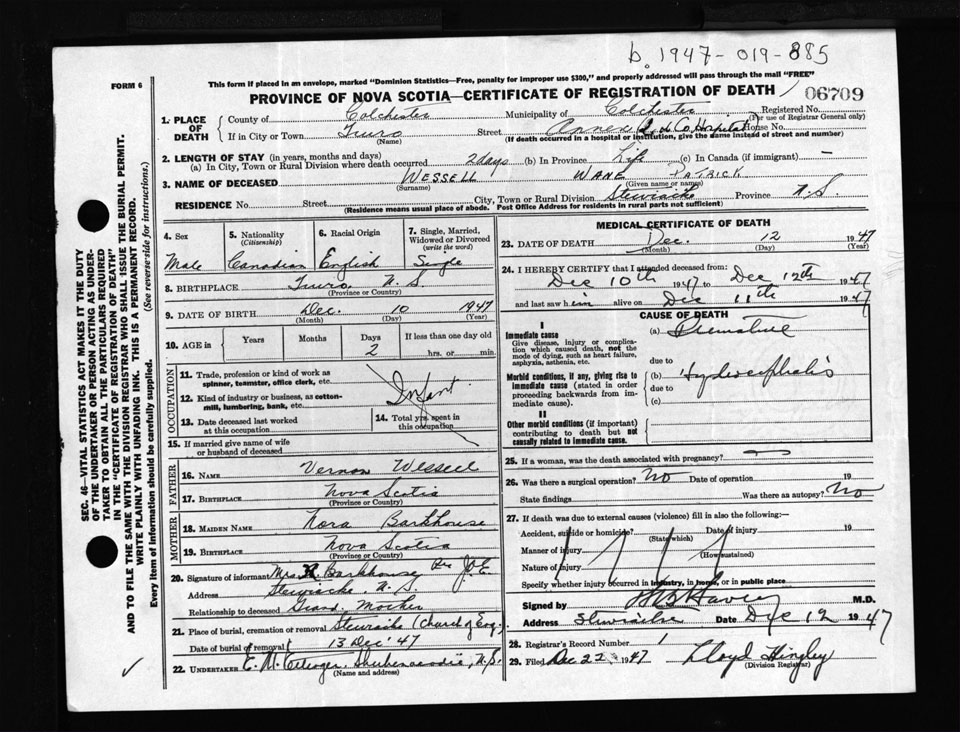 b. 1947-019-885
FORM 6
This form if placed in an envelope, marked "Dominion Statistics—Free, penalty for improper use $300," and properly addressed will pass through the mail "FREE"
PROVINCE OF NOVA SCOTIA—CERTIFICATE OF REGISTRATION OF DEATH
06709
1. PLACE OF DEATH
County of Colchester Municipality of Colchester Registered No.
(For use of Registrar General only)
If in City or Town Truro Street Hospital House No.
(Name) (If death occurred in a hospital or institution, give the name instead of street and number)
2. LENGTH OF STAY (in years, months and days)
(a) In City, Town or Rural Division where death occurred 2 days (b) In Province Life (c) In Canada (if immigrant) —
3. NAME OF DECEASED WESSELL WANE PATRICK
(Surname) (Given name or names)
RESIDENCE No. Street City, Town or Rural Division Stewiacke Province N.S.
(Residence means usual place of abode. Post Office Address for residents in rural parts not sufficient)
4. Sex
Male
5. Nationality
(Citizenship)
Canadian
6. Racial Origin
English
7. Single, Married, Widowed or Divorced
(write the word)
Single
8. BIRTHPLACE Truro N.S.
(Province or Country)
9. DATE OF BIRTH Dec. 10 1947
(Month) (Day) (Year)
10. AGE in Years Months Days If less than one day old
2 hrs. or min.
OCCUPATION
11. Trade, profession or kind of work as spinner, teamster, office clerk, etc.
Infant
12. Kind of industry or business, as cotton-mill, lumbering, bank, etc.
13. Date deceased last worked at this occupation
14. Total yrs. spent in this occupation
15. If married give name of wife or husband of deceased
FATHER
16. NAME Vernon Wessell
17. BIRTHPLACE Nova Scotia
(Province or Country)
MOTHER
18. MAIDEN NAME Nora Barkhouse
19. BIRTHPLACE Nova Scotia
(Province or Country)
20. Signature of informant Mrs. R. Barkhouse
Address Stewiacke, N.S.
Relationship to deceased Grand Mother
21. Place of burial, cremation or removal Stewiacke (Church of Eng.)
Date of burial or removal 13 Dec '47
22. UNDERTAKER Shubenacadie, N.S.
(Name and address)
MEDICAL CERTIFICATE OF DEATH
23. DATE OF DEATH Dec. 12 1947
(Month) (Day)
24. I HEREBY CERTIFY that I attended deceased from
Dec 10th 1947 to Dec 12th 1947
and last saw him alive on Dec 11th 1947
CAUSE OF DEATH
I
Immediate cause
Give disease, injury or complication which caused death, not the mode of dying, such as heart failure, asphyxia, asthenia, etc.
(a) Premature
due to
Morbid conditions, if any, giving rise to immediate cause (stated in order proceeding backwards from immediate cause).
(b) Hydrocephalis
due to
(c)
II
Other morbid conditions (if important) contributing to death but not causally related to immediate cause.
25. If a woman, was the death associated with pregnancy?
26. Was there a surgical operation? No Date of operation 19
State findings Was there an autopsy? No
27. If death was due to external causes (violence) fill in also the following:—
Accident, suicide or homicide? Date of injury 19
(State which)
Manner of injury
(How sustained)
Nature of injury
Specify whether injury occurred in industry, in home, or in public place
Signed by M.D.
Address Stewiacke Date Dec 12 1947
28. Registrar's Record Number 1
29. Filed Dec 22 1947 Lloyd Hingley
(Division Registrar)
SEC. 46—VITAL STATISTICS ACT MAKES IT THE DUTY
OF THE UNDERTAKER OR PERSON ACTING AS UNDER-
TAKER TO OBTAIN ALL THE PARTICULARS REQUIRED
IN THE "CERTIFICATE OF REGISTRATION OF DEATH"
AND TO FILE THE SAME WITH THE DIVISION REGISTRAR WHO SHALL ISSUE THE BURIAL PERMIT.
WRITE PLAINLY WITH UNFADING INK. THIS IS A PERMANENT RECORD.
Every item of information should be carefully supplied. (See reverse side for instructions).